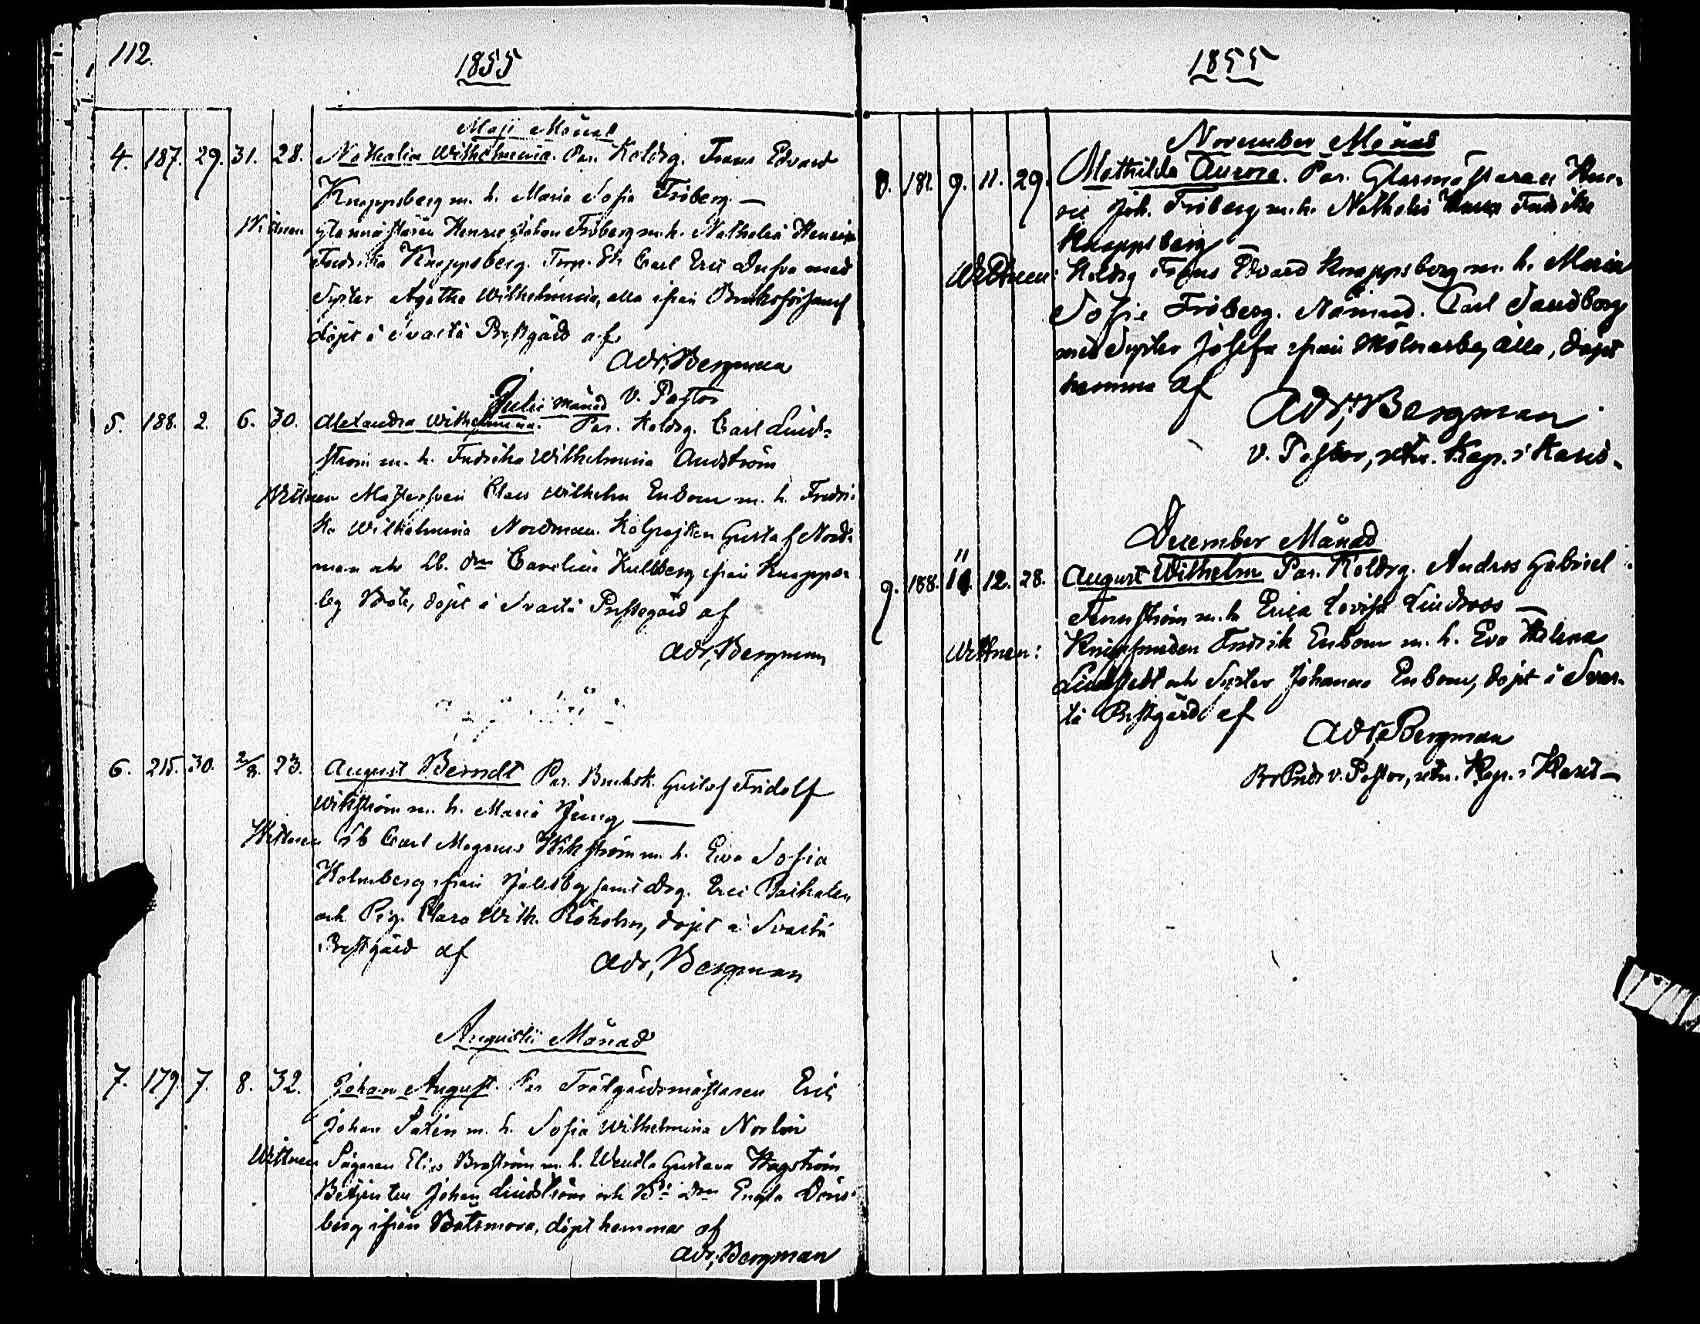 112.
1855
Maji Månad
4. 187. 29. 31. 28. Nathalia Wilhelmina. Par. Koldrg. Frans Edvard
Knappsberg m. h. Maria Sofia Fröberg —
Wittnen Glasmästaren Henric Johan Fröberg m. h. Nathalia Henrica
Fredrika Knappsberg. Carl Eric med
Syster Agatha Wilhelmina, alla ifrån
döpt i Svartå Prestgård af
Adr. Bergman
V. Pastor
Julii Månad
5. 188. 2. 6. 30. Alexandra Wilhelmina. Par. Koldrg. Carl Lind-
ström m. h. Fredrika Wilhelmina Andström
Wittnen Mästersven Claes Wilhelm Enbom m. h. Fredri-
ka Wilhelmina Nordman. Gustaf Nord-
man och Carolina Kullberg ifrån Knapps-
by döpt i Svartå Prestegård af
Adr. Bergman
6. 215. 30. 2/8. 23. August Berndt Par. Bruksk. Gustaf Fridolf
Wikström m. h. Maria Ljung —
Wittnen Carl Magnus Wikström m. h. Eva Sofia
Holmberg ifrån samt Drg. Eric
och Pig. Clara Wilh. döpt i Svartå
Prestgård af
Adr. Bergman
Augusti Månad
7. 179. 7. 8. 32. Johan August. Par Trädgårdsmästaren Eric
Johan Satén m. h. Sofia Wilhelmina Norlin
Wittnen Sågaren Elias Broström m. h. Wendla Gustava Hagström
Betjenten Johan Lindström och Engla
berg ifrån Båtsmora, döpt hemma af
Adr. Bergman
1855
November Månad
8. 181. 9. 11. 29. Mathilda Aurora. Par. Glasmästaren Hen-
ric Joh. Fröberg m. h. Nathalia Fredrika
Knappsberg
Wittnen: Koldrg Frans Edvard Knappsberg m. h. Maria
Sofia Fröberg. Nämnd. Carl Sandberg
med Syster Josefa ifrån Mölnarby alla, döpt
hemma af
Adr. Bergman
V. Pastor, Kap. i Karis.
December Månad
9. 188. 11 12. 28. August Wilhelm Par. Koldrg. Anders Gabriel
Fernström m. h. Erica Lovisa Lindroos —
Wittnen: Knipsmeden Fredrik Enbom m. h. Eva Helena
Lindstedt och Syster Johanna Enbom, döpt i Svar-
tå Prestgård af
Adr. Bergman
v. Pastor, Kap. i Karis —